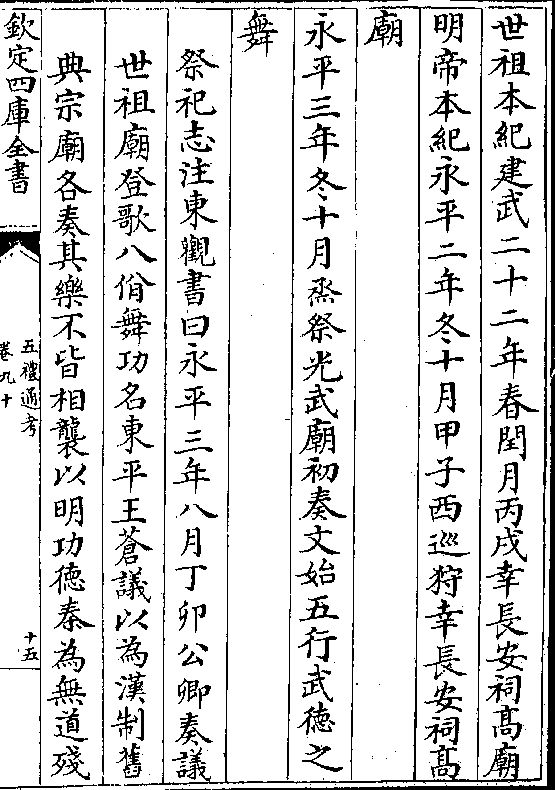 世祖本紀建武二十二年春閏月丙戌幸長安祠髙廟
明帝本紀永平二年冬十月甲子西巡狩幸長安祠髙
廟
永平三年冬十月烝祭光武廟初奏文始五行武德之
舞
祭祀志注東觀書曰永平三年八月丁卯公卿奏議
世祖廟登歌八佾舞功名東平王蒼議以為漢制舊
典宗廟各奏其樂不皆相襲以明功德秦為無道殘
欽定四庫全書
五禮通考
卷九十
十五